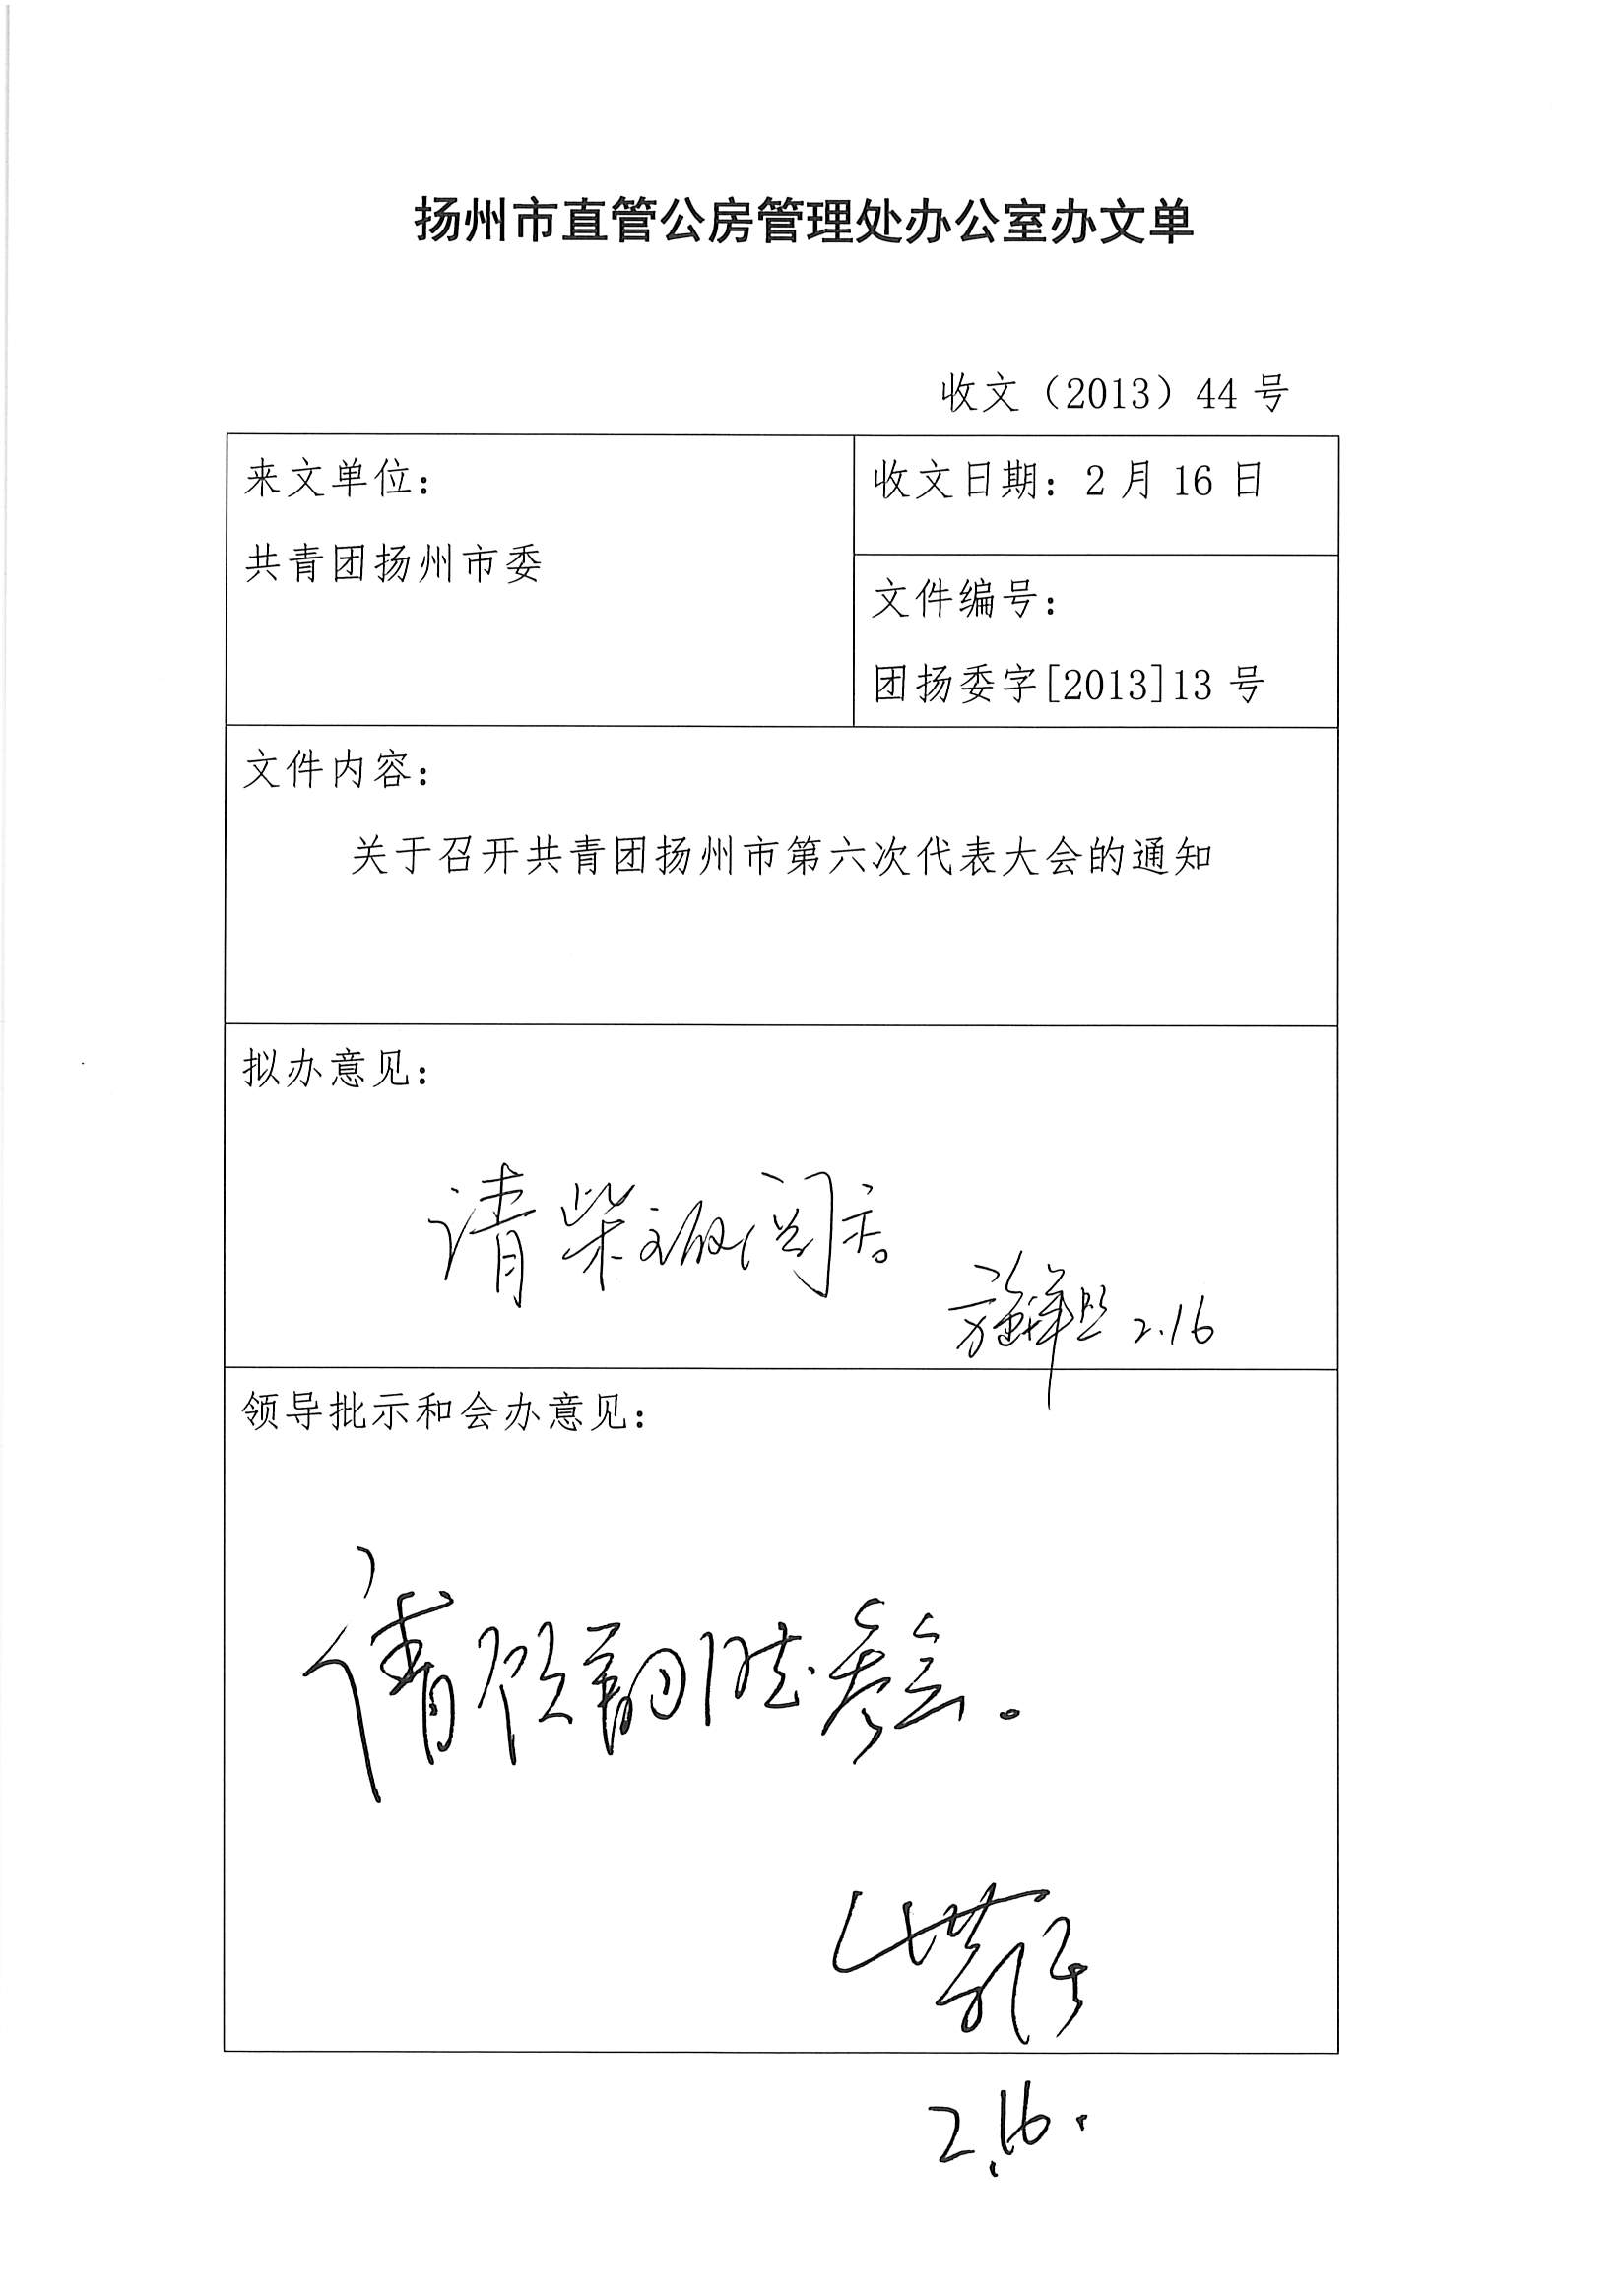 扬州市直管公房管理处办公室办文单
收文（2013）44 号
来文单位：
共青团扬州市委
收文日期：2 月 16 日
文件编号：
团扬委字[2013]13 号
文件内容：
关于召开共青团扬州市第六次代表大会的通知
拟办意见：
请柴 阅示。
2.16
领导批示和会办意见：
请 参会。
2.16.